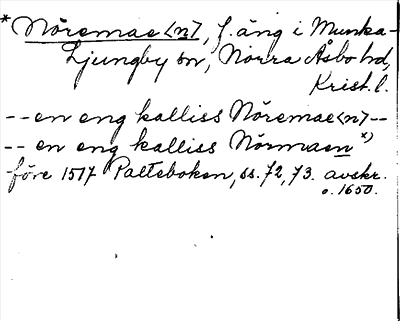 * Nöremae<n>, f. äng i Munka-
Ljungby sn, Norra Åsbo hd,
Krist. l.
-- en eng kalliss Nöremae<n> --
-- en eng kalliss Nörmaen *)
före 1517 Palteboken, ss. 72, 73. avskr.
o. 1650.